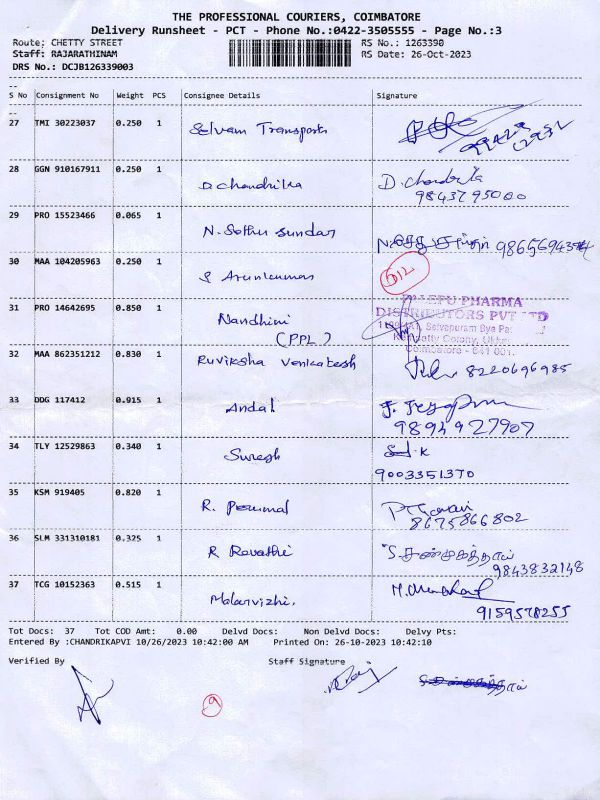 THE PROFESSIONAL COURIERS, COIMBATORE
Delivery Runsheet - PCT - Phone No.:0422-3505555 - Page No.:3
Route: CHETTY STREET RS No.: 1263390
Staff: RAJARATHINAM RS Date: 26-Oct-2023
DRS No.: DCJB126339003
S No Consignment No Weight PCS Consignee Details Signature
27 TMI 30223037 0.250 1 Selvam Transports
28 GGN 910167911 0.250 1 D. Chandrika D. Chandrika
9843795000
29 PRO 15523466 0.065 1 N. Sethu Sundar
30 MAA 104205963 0.250 1 S Arunkumar 512
31 PRO 14642695 0.850 1 Nandhini
(PPL)
PHARMA
DISTRIBUTORS PVT LTD
Selvapuram Bye Pa
Colony, Ukka
Coimbatore - 641 001.
32 MAA 862351212 0.830 1 Ruviksha Venkatesh 8220696985
33 DDG 117412 0.915 1 Andal
9894927907
34 TLY 12529863 0.340 1 Suresh
9003351370
35 KSM 919405 0.820 1 R. Perumal
8675866802
36 SLM 331310181 0.325 1 R Revathi S. சண்முகத்தாய்
9843832148
37 TCG 10152363 0.515 1 Malarvizhi.
9159578255
Tot Docs: 37 Tot COD Amt: 0.00 Delvd Docs: Non Delvd Docs: Delvy Pts:
Entered By :CHANDRIKAPVI 10/26/2023 10:42:00 AM Printed On: 26-10-2023 10:42:10
Verified By Staff Signature
9